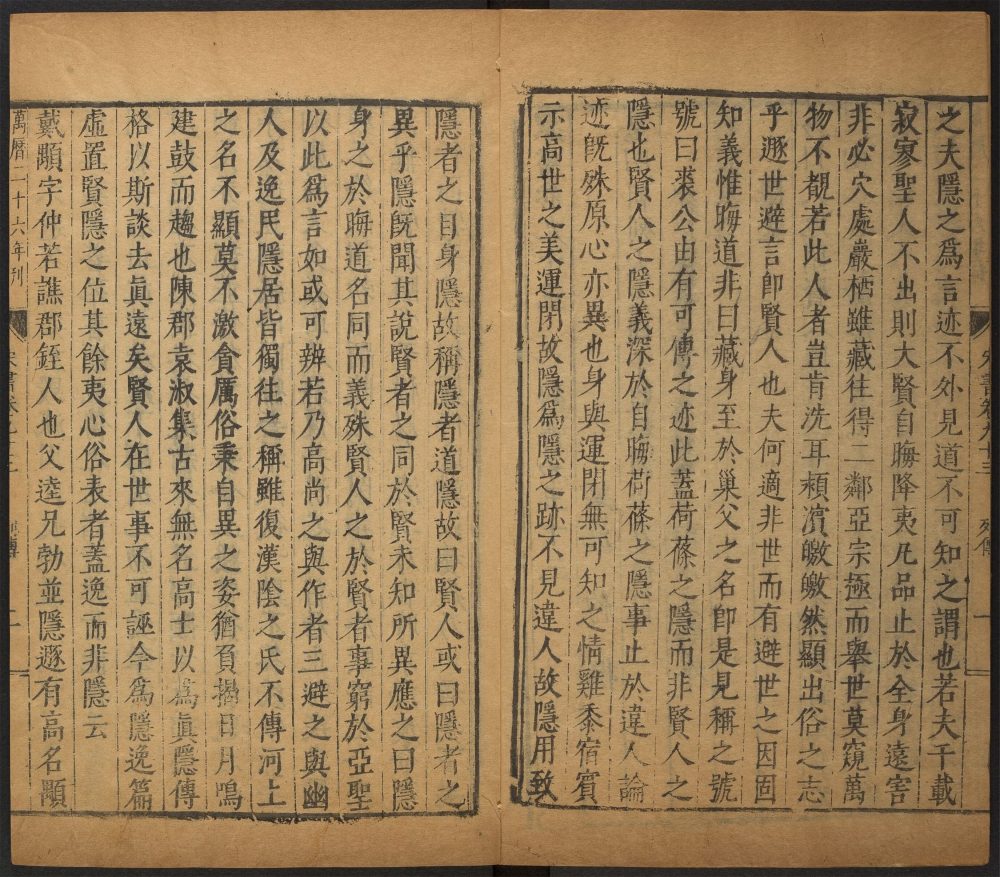 宋書卷九十三 列傳 一
之夫隱之為言迹不外見道不可知之謂也若夫千載
寂寥聖人不出則大賢自晦降夷凡品止於全身遠害
非必穴處巖栖雖藏往得二鄰亞宗極而舉世莫窺萬
物不覩若此人者豈肯洗耳潁濱皦皦然顯出俗之志
乎遯世避言即賢人也夫何適非世而有避世之因固
知義惟晦道非曰藏身至於巢父之名即是見稱之號
號曰裘公由有可傳之迹此蓋荷蓧之隱而非賢人之
隱也賢人之隱義深於自晦荷蓧之隱事止於違人論
迹既殊原心亦異也身與運閉無可知之情雞黍宿賓
示高世之美運閉故隱為隱之跡不見違人故隱用致
隱者之目身隱故稱隱者道隱故曰賢人或曰隱者之
異乎隱既聞其說賢者之同於賢未知所異應之曰隱
身之於晦道名同而義殊賢人之於賢者事窮於亞聖
以此為言如或可辨若乃高尚之與作者三避之與幽
人及逸民隱居皆獨往之稱雖復漢陰之氏不傳河上
之名不顯莫不激貪厲俗秉自異之姿猶負揭日月鳴
建鼓而趨也陳郡袁淑集古來無名高士以為真隱傳
格以斯談去真遠矣賢人在世事不可誣今為隱逸篇
虛置賢隱之位其餘夷心俗表者蓋逸而非隱云
戴顒字仲若譙郡銍人也父逵兄勃並隱遯有高名顒
萬曆二十六年刊 宋書卷九十三 列傳 一